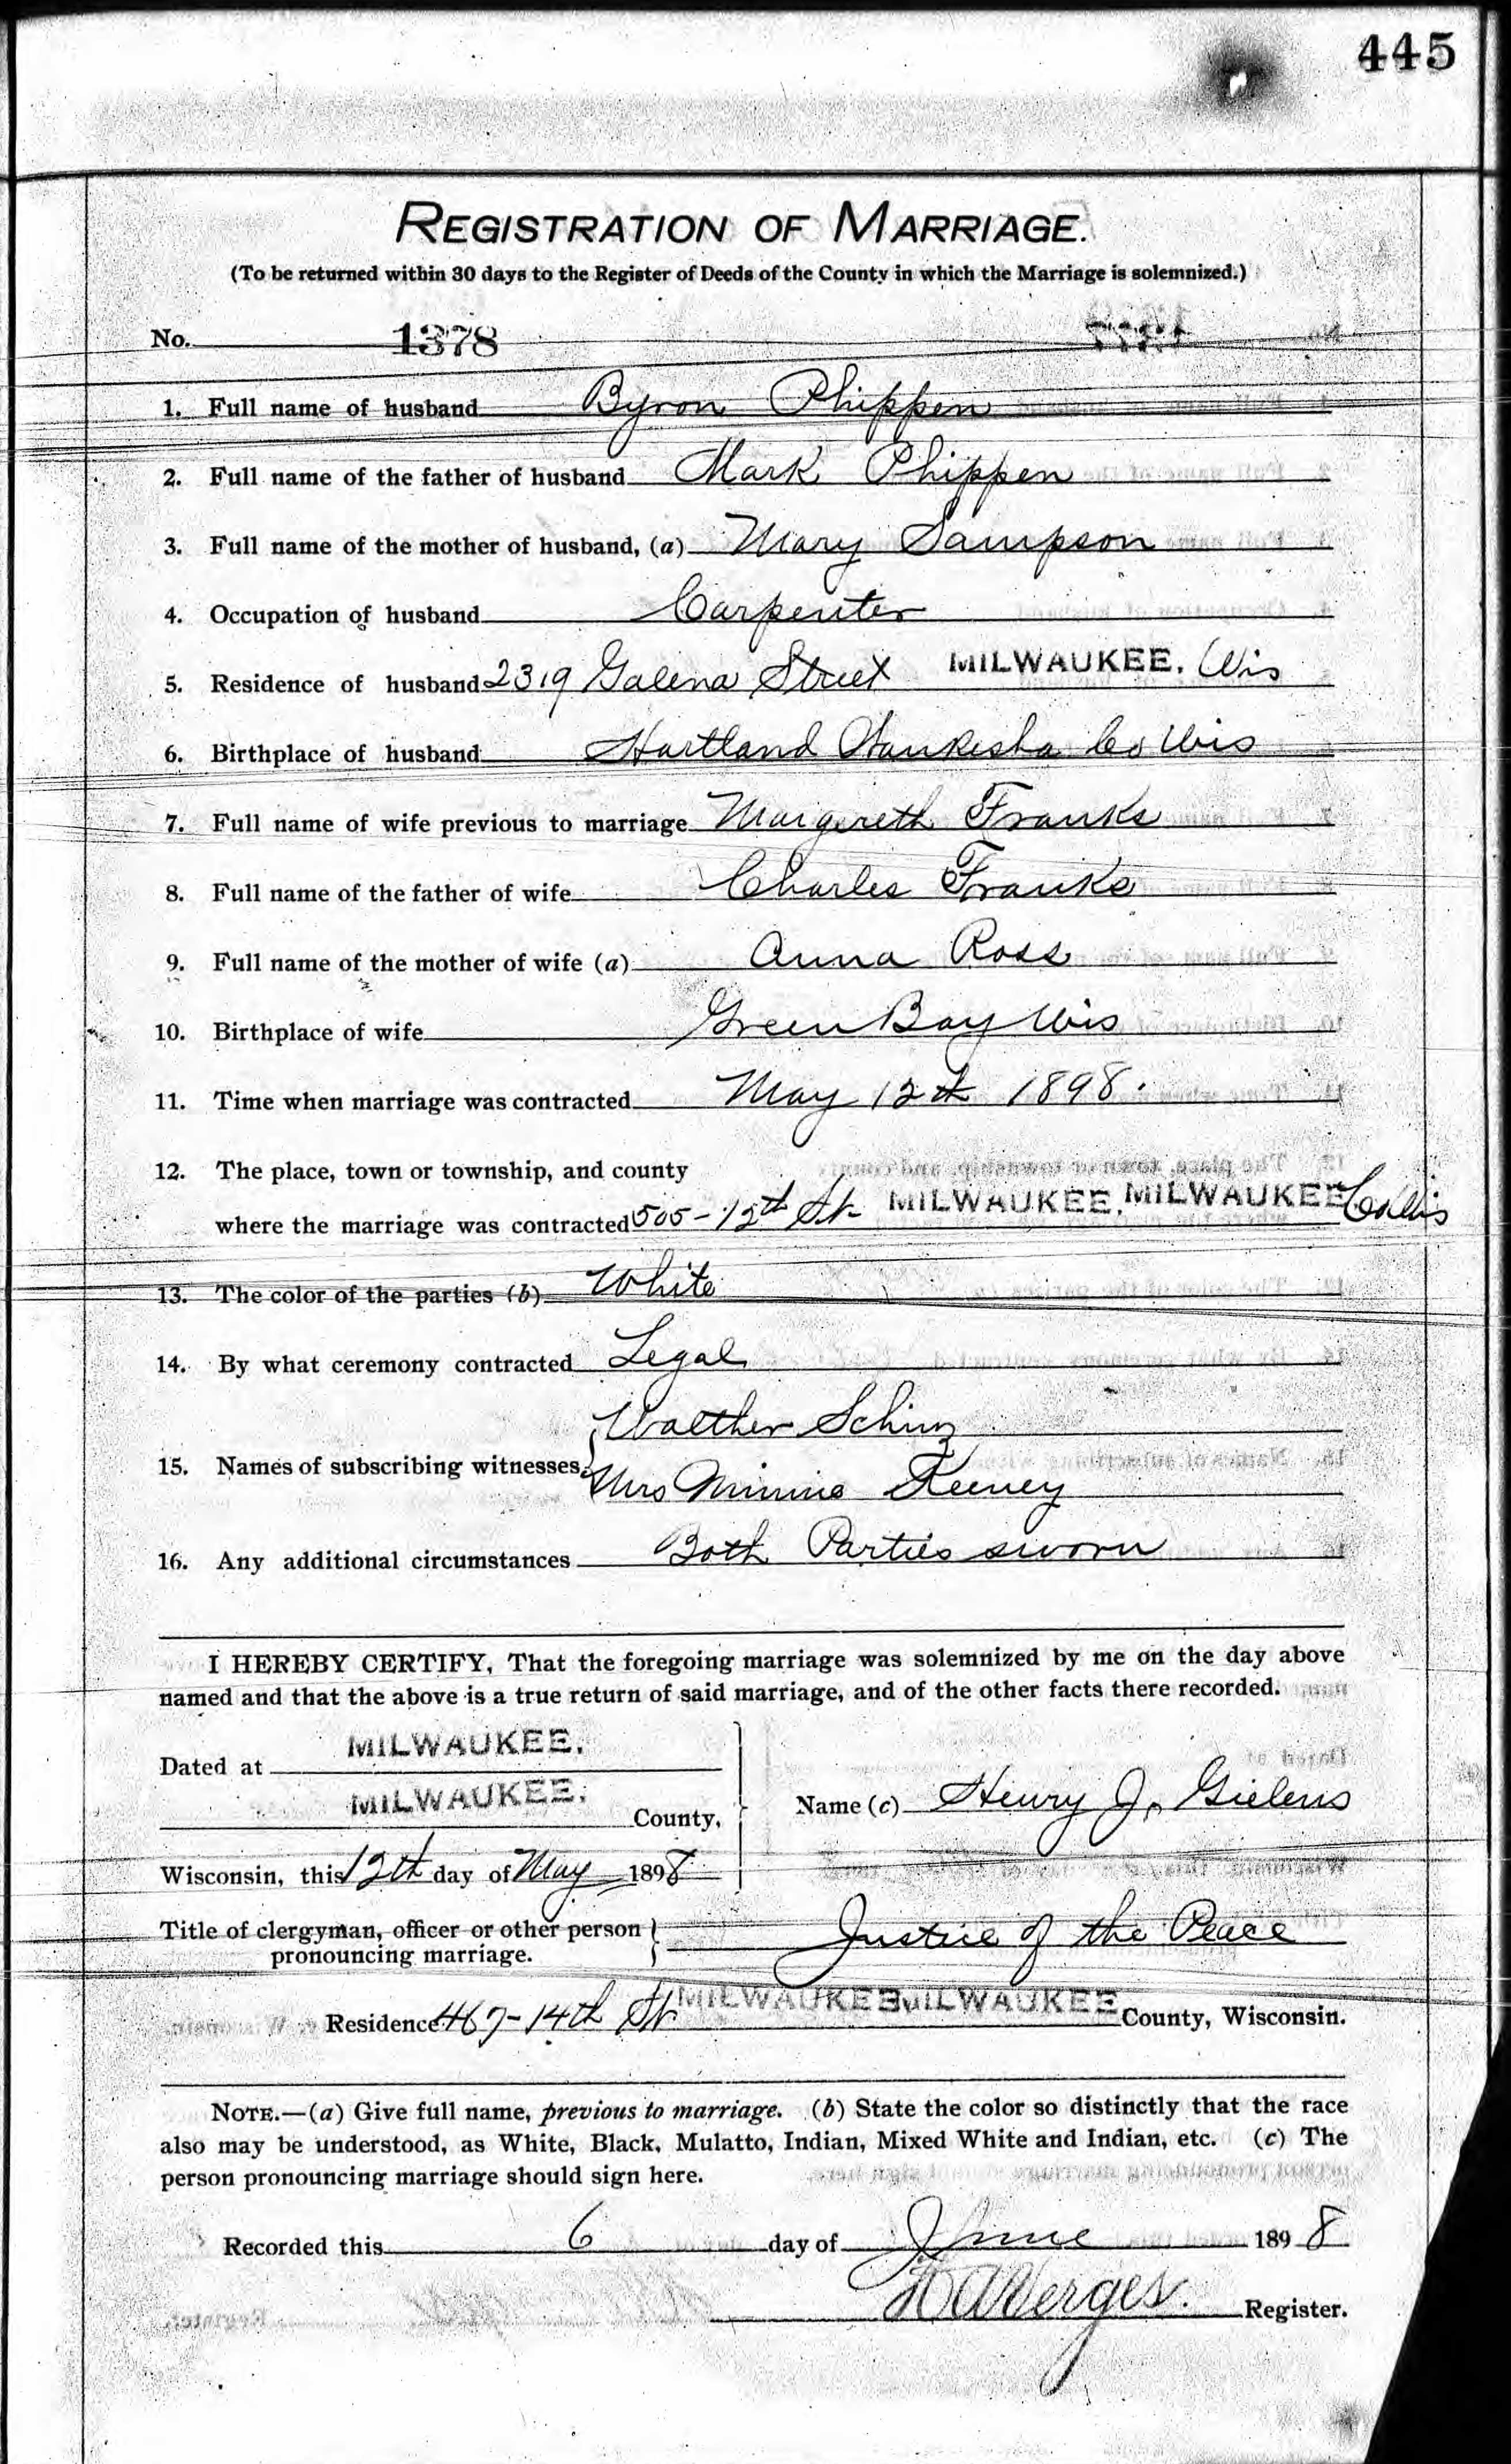 445
REGISTRATION OF MARRIAGE.
(To be returned within 30 days to the Register of Deeds of the County in which the Marriage is solemnized.)
No. 1378
1. Full name of husband Byron Phippen
2. Full name of the father of husband Mark Phippen
3. Full name of the mother of husband, (a) Mary Sampson
4. Occupation of husband Carpenter
5. Residence of husband 2319 Galena Street MILWAUKEE. Wis
6. Birthplace of husband Hartland Waukesha Co Wis
7. Full name of wife previous to marriage Margereth Franks
8. Full name of the father of wife Charles Franks
9. Full name of the mother of wife (a) Anna Ross
10. Birthplace of wife Green Bay Wis
11. Time when marriage was contracted May 12th 1898.
12. The place, town or township, and county
where the marriage was contracted 505-12th St. MILWAUKEE. MILWAUKEE Co Wis
13. The color of the parties (b) White
14. By what ceremony contracted Legal
Walther Schinz
15. Names of subscribing witnesses
Mrs Minnie Keeney
16. Any additional circumstances Both Parties sworn
I HEREBY CERTIFY, That the foregoing marriage was solemnized by me on the day above
named and that the above is a true return of said marriage, and of the other facts there recorded.
Dated at MILWAUKEE.
MILWAUKEE. County, Name (c) Henry J. Gielens
Wisconsin, this 12th day of May 1898
Title of clergyman, officer or other person Justice of the Peace
pronouncing marriage.
Residence 467-14th St. MILWAUKEE MILWAUKEE County, Wisconsin.
NOTE.—(a) Give full name, previous to marriage. (b) State the color so distinctly that the race
also may be understood, as White, Black, Mulatto, Indian, Mixed White and Indian, etc. (c) The
person pronouncing marriage should sign here.
Recorded this 6 day of June 1898
Verges. Register.